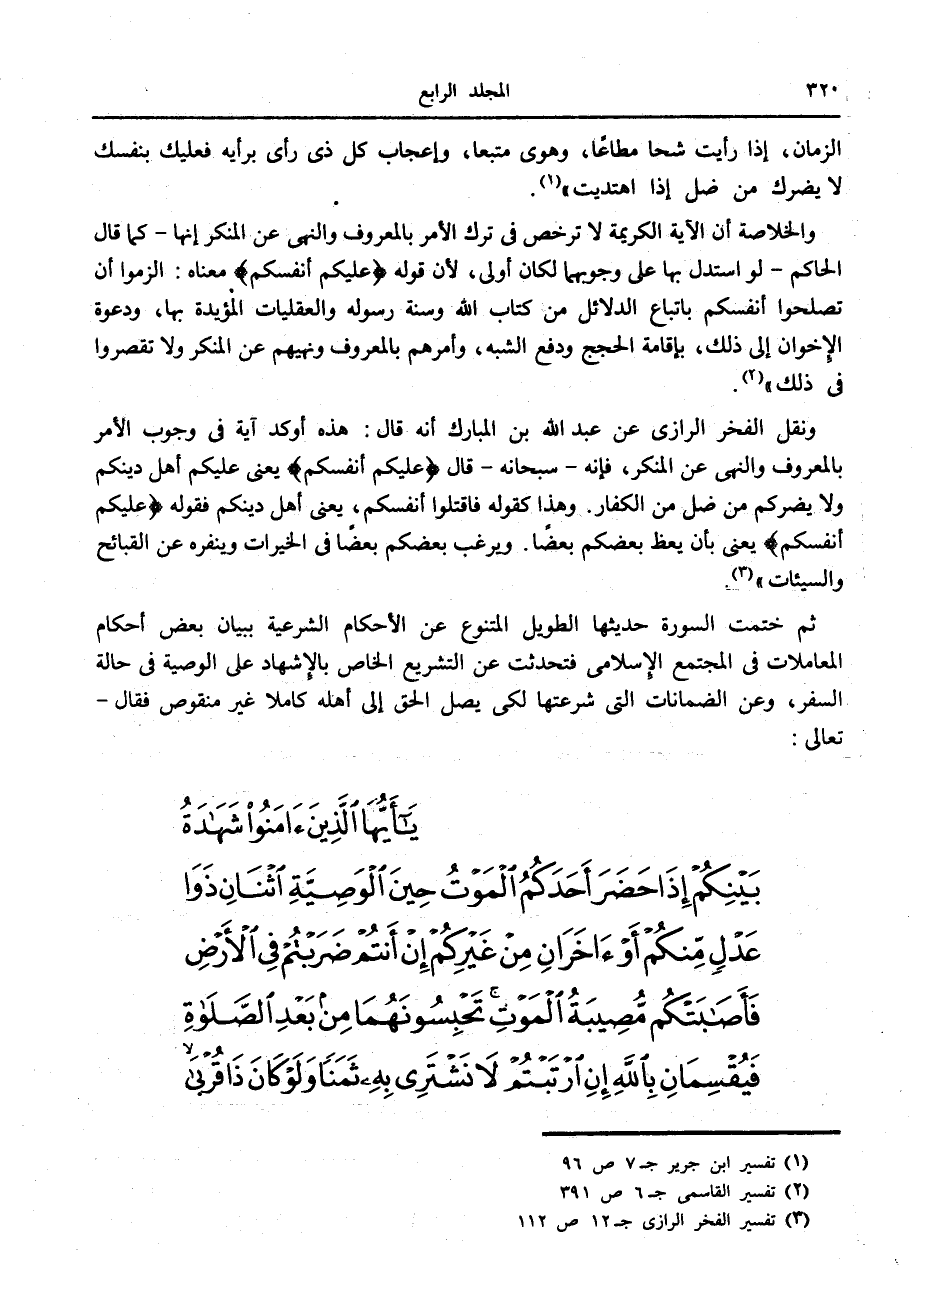 ٣٢٠
المجلد الرابع
الزمان، إذا رأيت شحا مطاعًا، وهوى متبعا، وإعجاب كل ذى رأى برأيه فعليك بنفسك
لا يضرك من ضل إذا اهتديت»(١).
والخلاصة أن الآية الكريمة لا ترخص فى ترك الأمر بالمعروف والنهى عن المنكر إنها - كما قال
الحاكم - لو استدل بها على وجوبهما لكان أولى، لأن قوله ﴿عليكم أنفسكم﴾ معناه : الزموا أن
تصلحوا أنفسكم باتباع الدلائل من كتاب الله وسنة رسوله والعقليات المؤيدة بها، ودعوة
الإخوان إلى ذلك، بإقامة الحجج ودفع الشبه، وأمرهم بالمعروف ونهيهم عن المنكر ولا تقصروا
فى ذلك»(٢).
ونقل الفخر الرازى عن عبد الله بن المبارك أنه قال : هذه أوكد آية فى وجوب الأمر
بالمعروف والنهى عن المنكر، فإنه - سبحانه - قال ﴿عليكم أنفسكم﴾ يعنى عليكم أهل دينكم
ولا يضركم من ضل من الكفار. وهذا كقوله فاقتلوا أنفسكم، يعنى أهل دينكم فقوله ﴿عليكم
أنفسكم﴾ يعنى بأن يعظ بعضكم بعضًا. ويرغب بعضكم بعضًا فى الخيرات وينفره عن القبائح
والسيئات»(٣).
ثم ختمت السورة حديثها الطويل المتنوع عن الأحكام الشرعية ببيان بعض أحكام
المعاملات فى المجتمع الإسلامى فتحدثت عن التشريع الخاص بالإشهاد على الوصية فى حالة
السفر، وعن الضمانات التى شرعتها لكى يصل الحق إلى أهله كاملا غير منقوص فقال -
تعالى :
يَٰٓأَيُّهَا ٱلَّذِينَ ءَامَنُوا۟ شَهَٰدَةُ
بَيْنِكُمْ إِذَا حَضَرَ أَحَدَكُمُ ٱلْمَوْتُ حِينَ ٱلْوَصِيَّةِ ٱثْنَانِ ذَوَا
عَدْلٍ مِّنكُمْ أَوْ ءَاخَرَانِ مِنْ غَيْرِكُمْ إِنْ أَنتُمْ ضَرَبْتُمْ فِى ٱلْأَرْضِ
فَأَصَٰبَتْكُم مُّصِيبَةُ ٱلْمَوْتِ ۚ تَحْبِسُونَهُمَا مِنۢ بَعْدِ ٱلصَّلَوٰةِ
فَيُقْسِمَانِ بِٱللَّهِ إِنِ ٱرْتَبْتُمْ لَا نَشْتَرِى بِهِۦ ثَمَنًا وَلَوْ كَانَ ذَا قُرْبَىٰ ۙ
(١) تفسير ابن جرير جـ ٧ ص ٩٦
(٢) تفسير القاسمى جـ ٦ ص ٣٩١
(٣) تفسير الفخر الرازى جـ ١٢ ص ١١٢